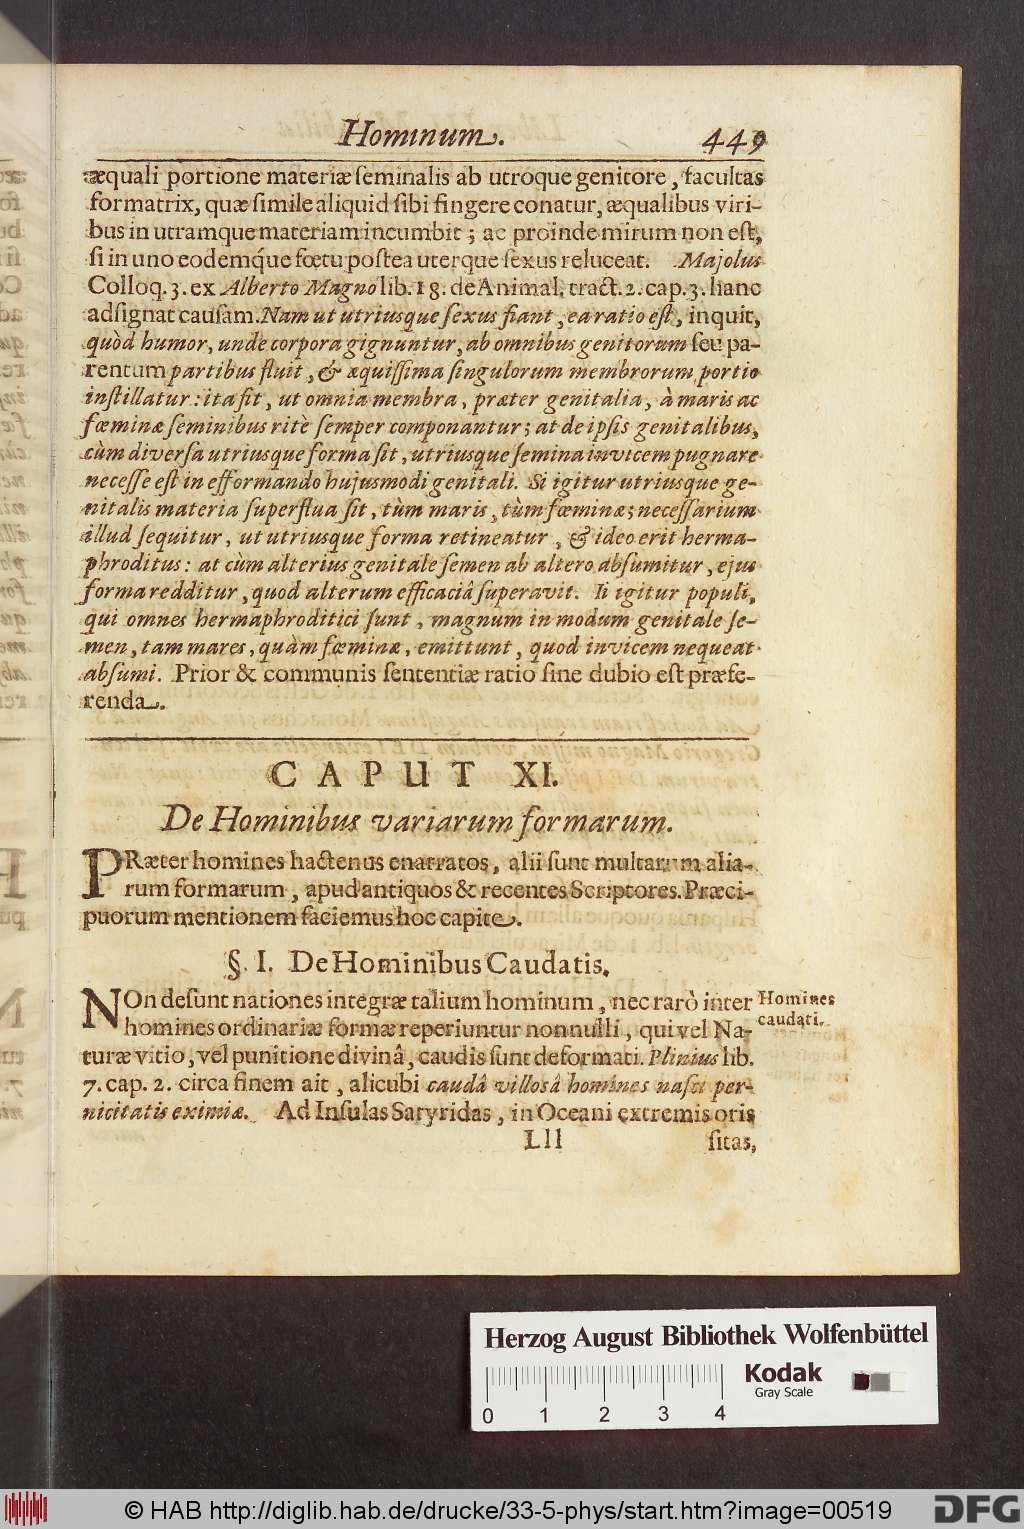 Hominum.
449
æquali portione materiæ ſeminalis ab utroque genitore, facultas
formatrix, quæ ſimile aliquid ſibi fingere conatur, æqualibus viri-
bus in utramque materiam incumbit; ac proinde mirum non eſt,
ſi in uno eodemq́ue fœtu poſtea uterque ſexus reluceat. Majolus
Colloq. 3. ex Alberto Magno lib. 18. de Animal. tract. 2. cap. 3. hanc
adſignat cauſam. Nam ut utriusque ſexus fiant, ea ratio eſt, inquit,
quòd humor, unde corpora gignuntur, ab omnibus genitorum ſeu pa-
rentum partibus fluit, & æquiſſima ſingulorum membrorum portio
inſtillatur: ita fit, ut omnia membra, præter genitalia, à maris ac
fœminæ ſeminibus ritè ſemper componantur; at de ipſis genitalibus,
cùm diverſa utriusque forma ſit, utriusque ſemina invicem pugnare
neceſſe eſt in efformando hujusmodi genitali. Si igitur utriusque ge-
nitalis materia ſuperflua ſit, tùm maris, tùm fœminæ; neceſſarium
illud ſequitur, ut utriusque forma retineatur, & ideo erit herma-
phroditus: at cùm alterius genitale ſemen ab altero abſumitur, ejus
forma redditur, quod alterum efficaciâ ſuperavit. Ii igitur populi,
qui omnes hermaphroditici ſunt, magnum in modum genitale ſe-
men, tam mares, quàm fœminæ, emittunt, quod invicem nequeat
abſumi. Prior & communis ſententiæ ratio ſine dubio eſt præfe-
renda.
CAPUT XI.
De Hominibus variarum formarum.
PRæter homines hactenus enarratos, alii ſunt multarum alia-
rum formarum, apud antiquos & recentes Scriptores. Præci-
puorum mentionem faciemus hoc capite.
§. I. De Hominibus Caudatis.
NOn deſunt nationes integræ talium hominum, nec rarò inter
homines ordinariæ formæ reperiuntur nonnulli, qui vel Na-
turæ vitio, vel punitione divinâ, caudis ſunt deformati. Plinius lib.
7. cap. 2. circa finem ait, alicubi caudâ villosâ homines naſci per-
nicitatis eximiæ. Ad Inſulas Satyridas, in Oceani extremis oris
Homines
caudati.
Lll
ſitas,
Herzog August Bibliothek Wolfenbüttel
Kodak
Gray Scale
0 1 2 3 4
© HAB http://diglib.hab.de/drucke/33-5-phys/start.htm?image=00519
DFG